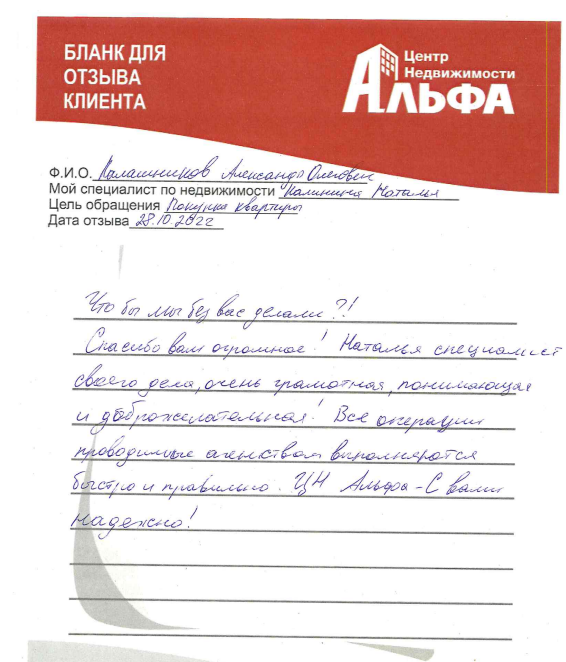 БЛАНК ДЛЯ
ОТЗЫВА
КЛИЕНТА
Центр
Недвижимости
АЛЬФА
Ф.И.О. Калашников Александр Олегович
Мой специалист по недвижимости Калинина Наталья
Цель обращения Покупка квартиры
Дата отзыва 28.10.2022
Что бы мы без вас делали?!
Спасибо вам огромное! Наталья специалист
своего дела, очень грамотная, понимающая
и доброжелательная! Все операции
проводимые агенством выполняются
быстро и правильно. ЦН Альфа - С вами
надежно!